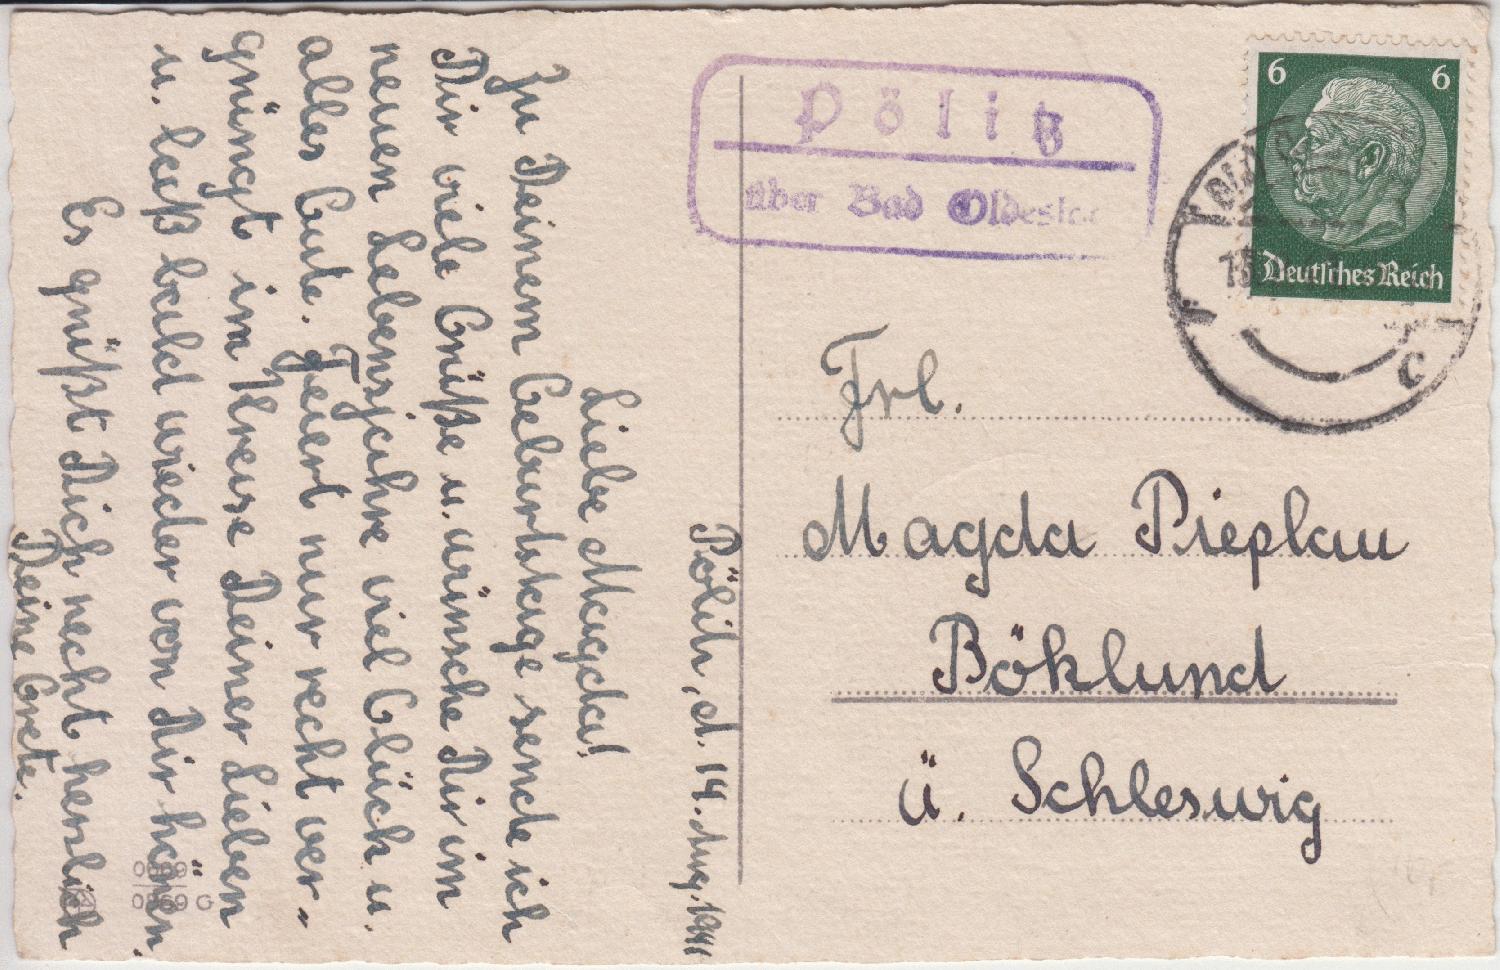 Pölitz, d. 14. Aug. 1941
Liebe Magda!
Zu Deinem Geburtstage sende ich
Dir viele Grüße u. wünsche Dir im
neuen Lebensjahre viel Glück u.
alles Gute. Feiert nur recht ver-
gnügt im Kreise Deiner Lieben
u. laß bald wieder von Dir hören.
Es grüßt Dich recht herzlich
Deine Grete.
Pölitz
über Bad Oldesloe
6 6
Deutsches Reich
c
Frl.
Magda Pieplau
Böklund
ü. Schleswig
0869 G